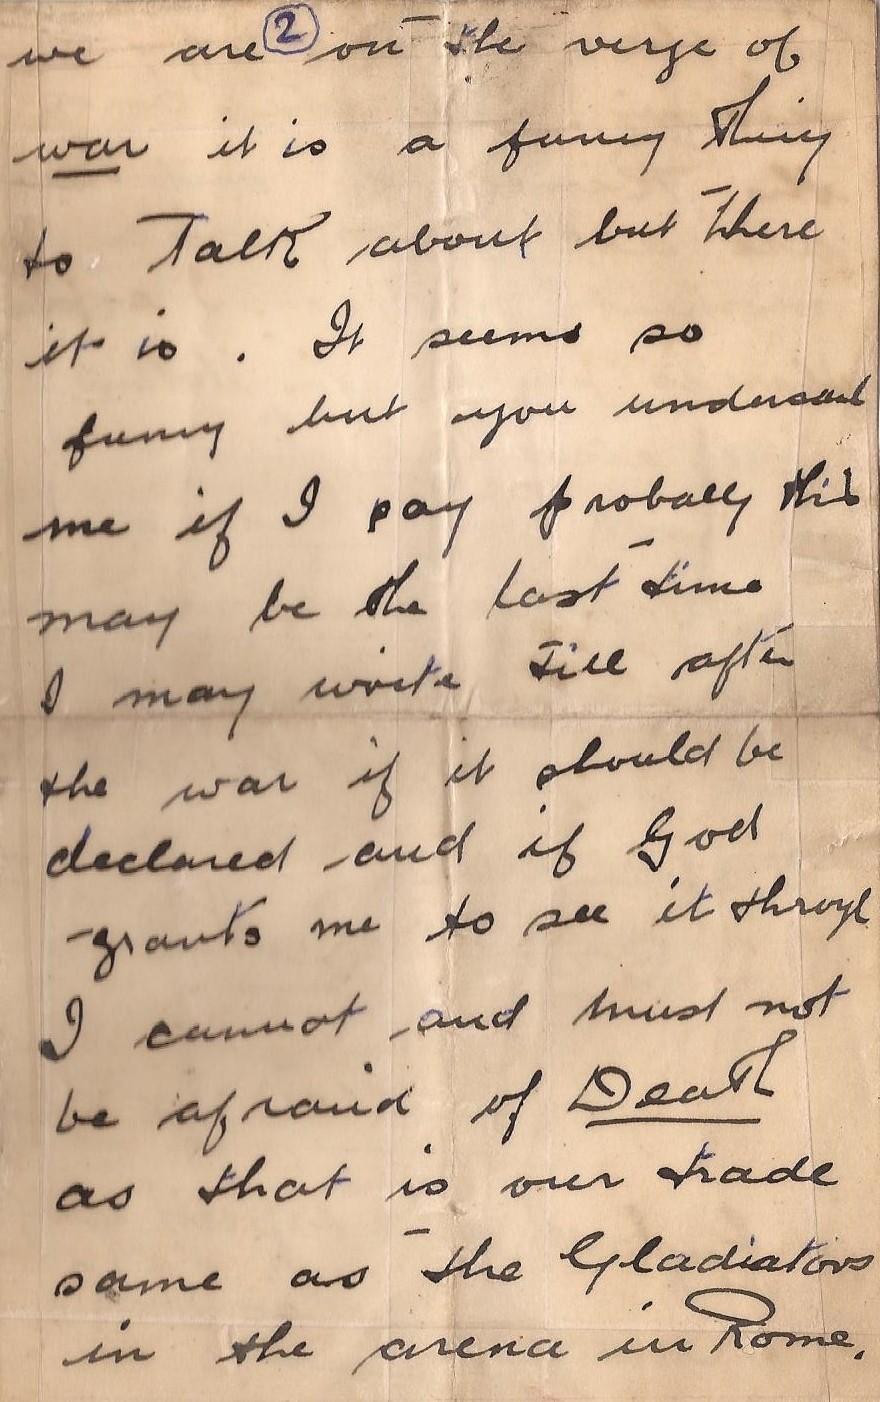 ②
we are on the verge of
war it is a funny thing
to Talk about but there
it is . It seems so
funny but you undersand
me if I say probally this
may be the last time
I may write till after
the war if it should be
declared and if God
grants me to see it through
I cannot and must not
be afraid of Death
as that is our trade
same as the Gladiators
in the arena in Rome.